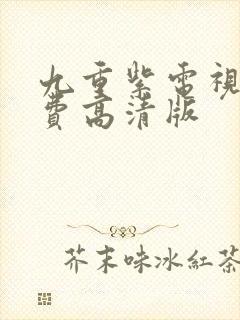 九重紫電視
費高清版
芥末味冰紅茶